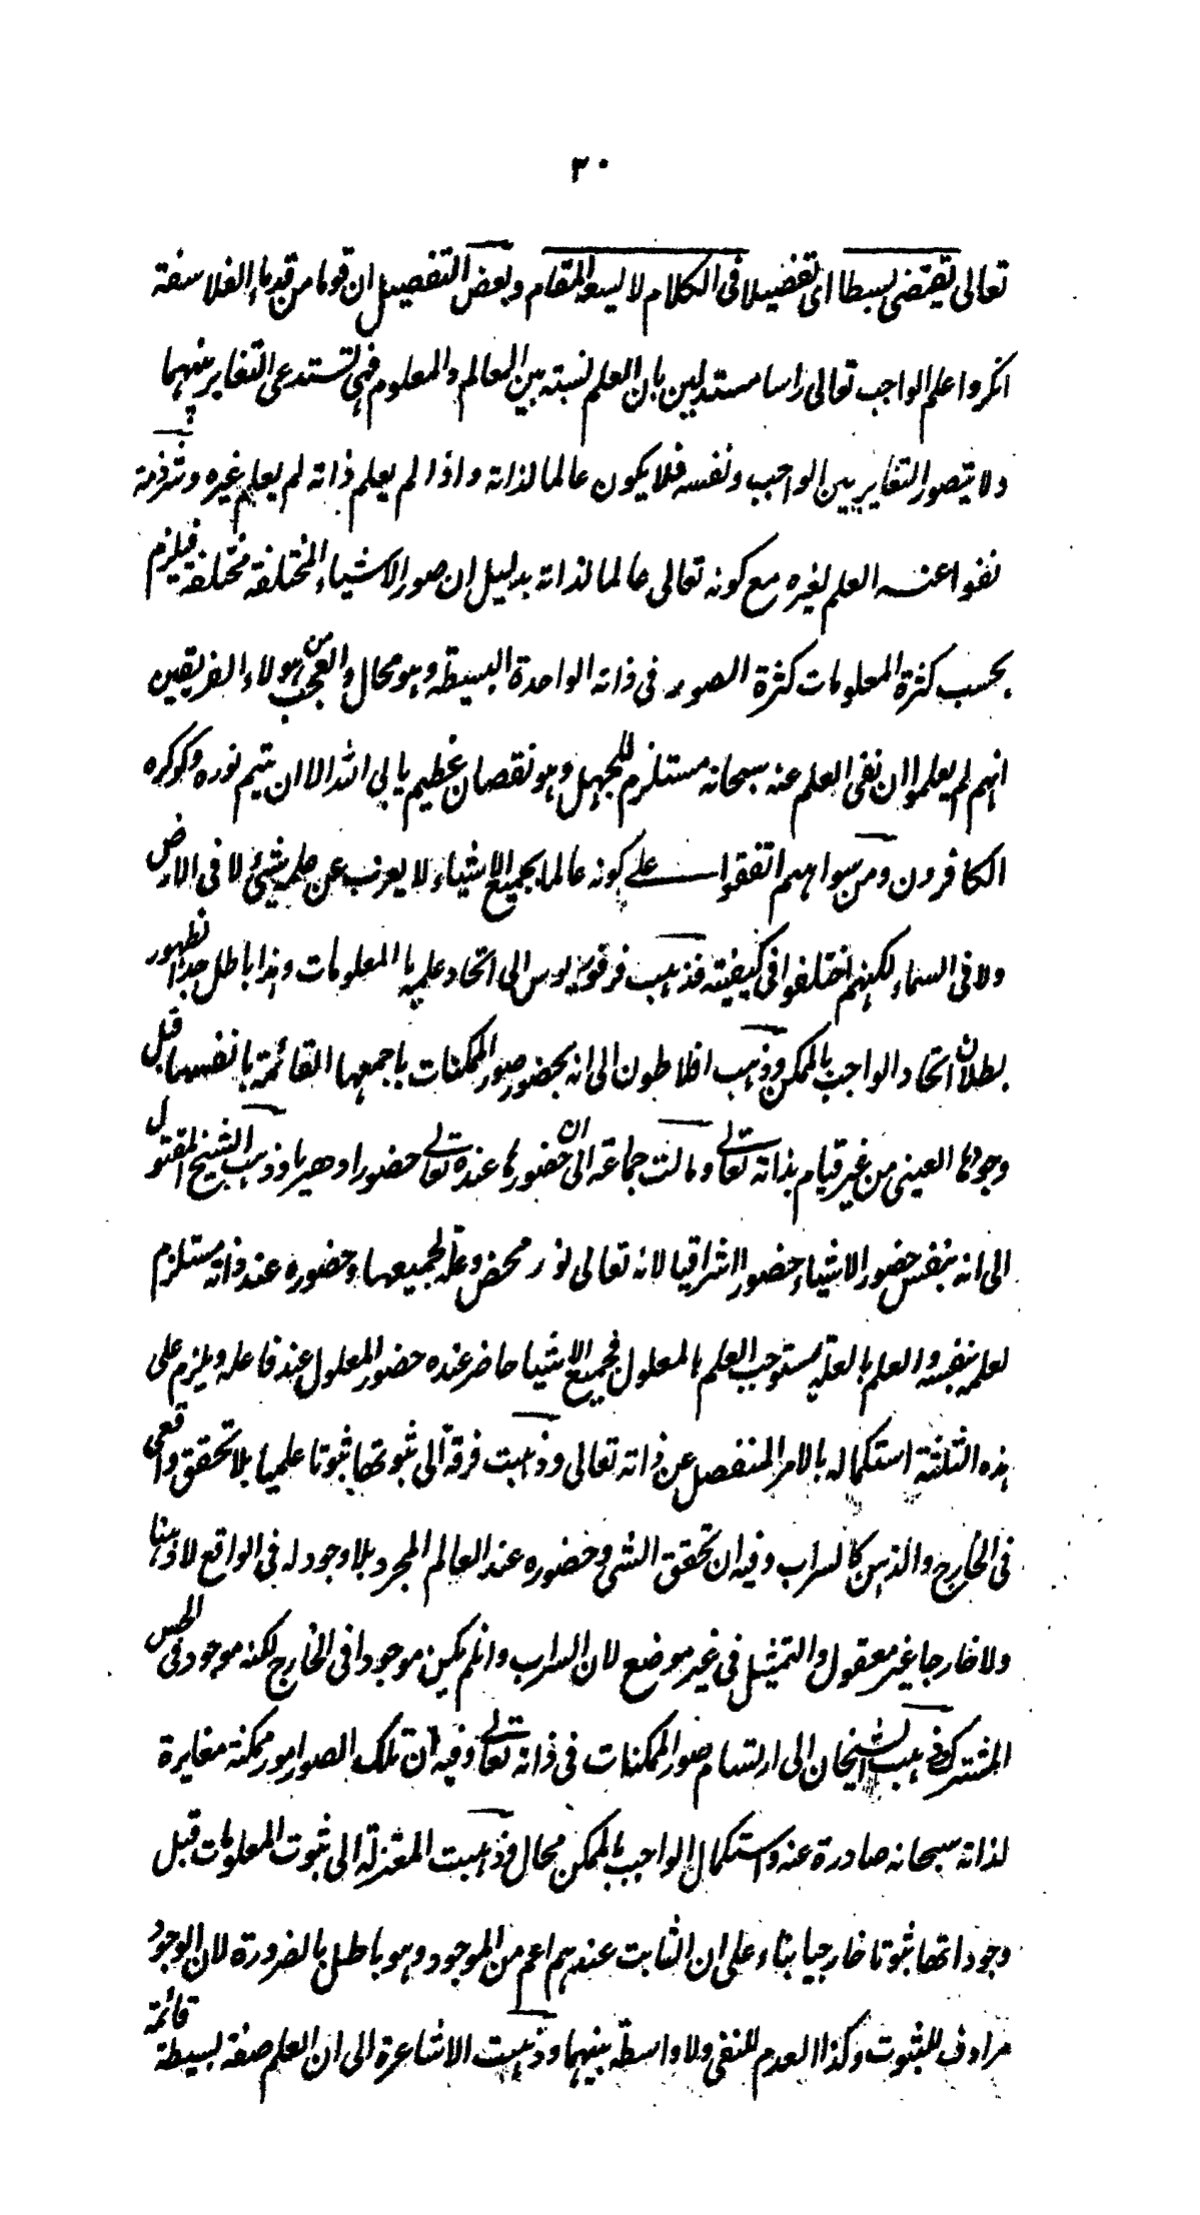 ٣٠
تعالى يقتضى بسطا اى تفضيلا فى الكلام لا يسعه المقام وبعض التفصيل ان قوما من قدماء الفلاسفة
انكروا علم الواجب تعالى راسا مستدلين بان العلم نسبته بين العالم والمعلوم فهى تستدعى التغاير بينهما
ولا يتصور التغاير بين الواجب ونفسه فلا يكون عالما لذاته واذا لم يعلم ذاته لم يعلم غيره وشرذمة
نفوا عنه العلم لغيره مع كونه تعالى عالما لذاته بدليل ان صور الاشياء المختلفة مختلفة فيلزم
بحسب كثرة المعلومات كثرة الصور فى ذاته الواحدة البسيطة وهو محال والعجب من هولاء الفريقين
انهم لم يعلموا ان نفى العلم عنه سبحانه مستلزم للجهل وهو نقصان عظيم يابى الله الا ان يتيم نوره ولو كره
الكافرون ومن سواهم اتفقوا على كونه عالما بجميع الاشياء لا يعزب عن علمه شيئ لا فى الارض
ولا فى السماء لكنهم اختلفوا فى كيفيته فذهب فرفوريوس الى اتحاد علمه بالمعلومات وهذا باطل جدا لظهور
بطلان اتحاد الواجب بالممكن وذهب افلاطون الى انه بحضور صور الممكنات باجمعها القائمة بانفسها قبل
وجودها العينى من غير قيام بذاته تعالى ومالت جماعة الى ان حضورها عنده تعالى حضورا دهريا وذهب الشيخ المقتول
الى انه بنفس حضور الاشياء حضورا اشراقيا لانه تعالى نور محض وعلة لجميعها وحضوره عند ذاته مستلزم
لعلمه بنفسه والعلم بالعلة يستوجب العلم بالمعلول فجميع الاشيا حاضر عنده حضور المعلول عند فاعله ويلزم على
هذه الثلثة استكماله بالامر المنفصل عن ذاته تعالى وذهبت فرقة الى ثبوتها ثبوتا علميا بلا تحقق واقعى
فى الخارج والذهن كالسراب وفيه ان تحقق الشى وحضوره عند العالم المجرد بلا وجود له فى الواقع لا ذهنا
ولا خارجا غير معقول والتمثيل فى غير موضع لان السراب وان لم يكن موجودا فى الخارج لكنه موجود فى الحس
المشترك وذهب الشيخان الى ارتسام صور الممكنات فى ذاته تعالى وفيه ان تلك الصور امور ممكنة مغايرة
لذاته سبحانه صادرة عنه واستكمال الواجب بالممكن محال وذهبت المعتزلة الى ثبوت المعلومات قبل
وجوداتها ثبوتا خارجيا بناء على ان الثابت عندهم اعم من الموجود وهو باطل بالضرورة لان الوجود
مرادف للثبوت وكذا العدم للنفى ولا واسطة بينهما وذهبت الاشاعرة الى ان العلم صفة بسيطة قائمة